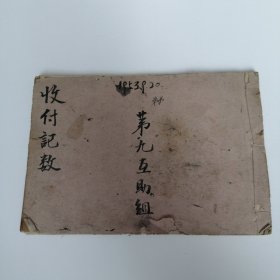 1953.9.20
第九互助組
收付記数